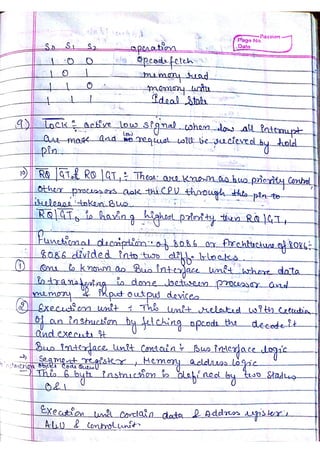 Page No.
Date
S0 S1 S2 operation
1 0 0 Opcode fetch
1 0 1 memory read
1 1 0 memory write
1 1 1 Ideal State
9) Lock :- active low signal. when low all interrupt
are mask and no request will be recieved by hold
pin.
10) RQ/GT0 & RQ/GT1 :- These are known as bus priority control,
other processors ask the CPU through this pin to
release token Bus.
RQ/GT0 is having highest priority then RQ/GT1
Functional description of 8086 or Architecture of 8086:-
8086 divided into two diff blocks.
① One is known as Bus interface unit where data
is transfering is done between processor and
memory & input output devices
② Execution unit :- This unit related with Execution
of an instruction by fetching opcode the decode it
and execute it
Bus interface unit contain :- Bus interface logic
→ Segment register, Memory address logic
→ This 6 byte instruction is defined by two status
0 & 1
Execution unit contain data & Address register,
ALU & control unit.